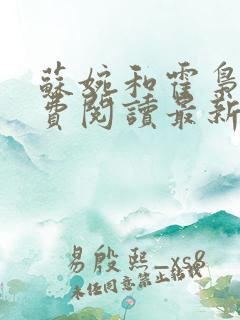 蘇婉和霍梟
費閱讀最新
易殷熙_xs8
未经同意禁止转载